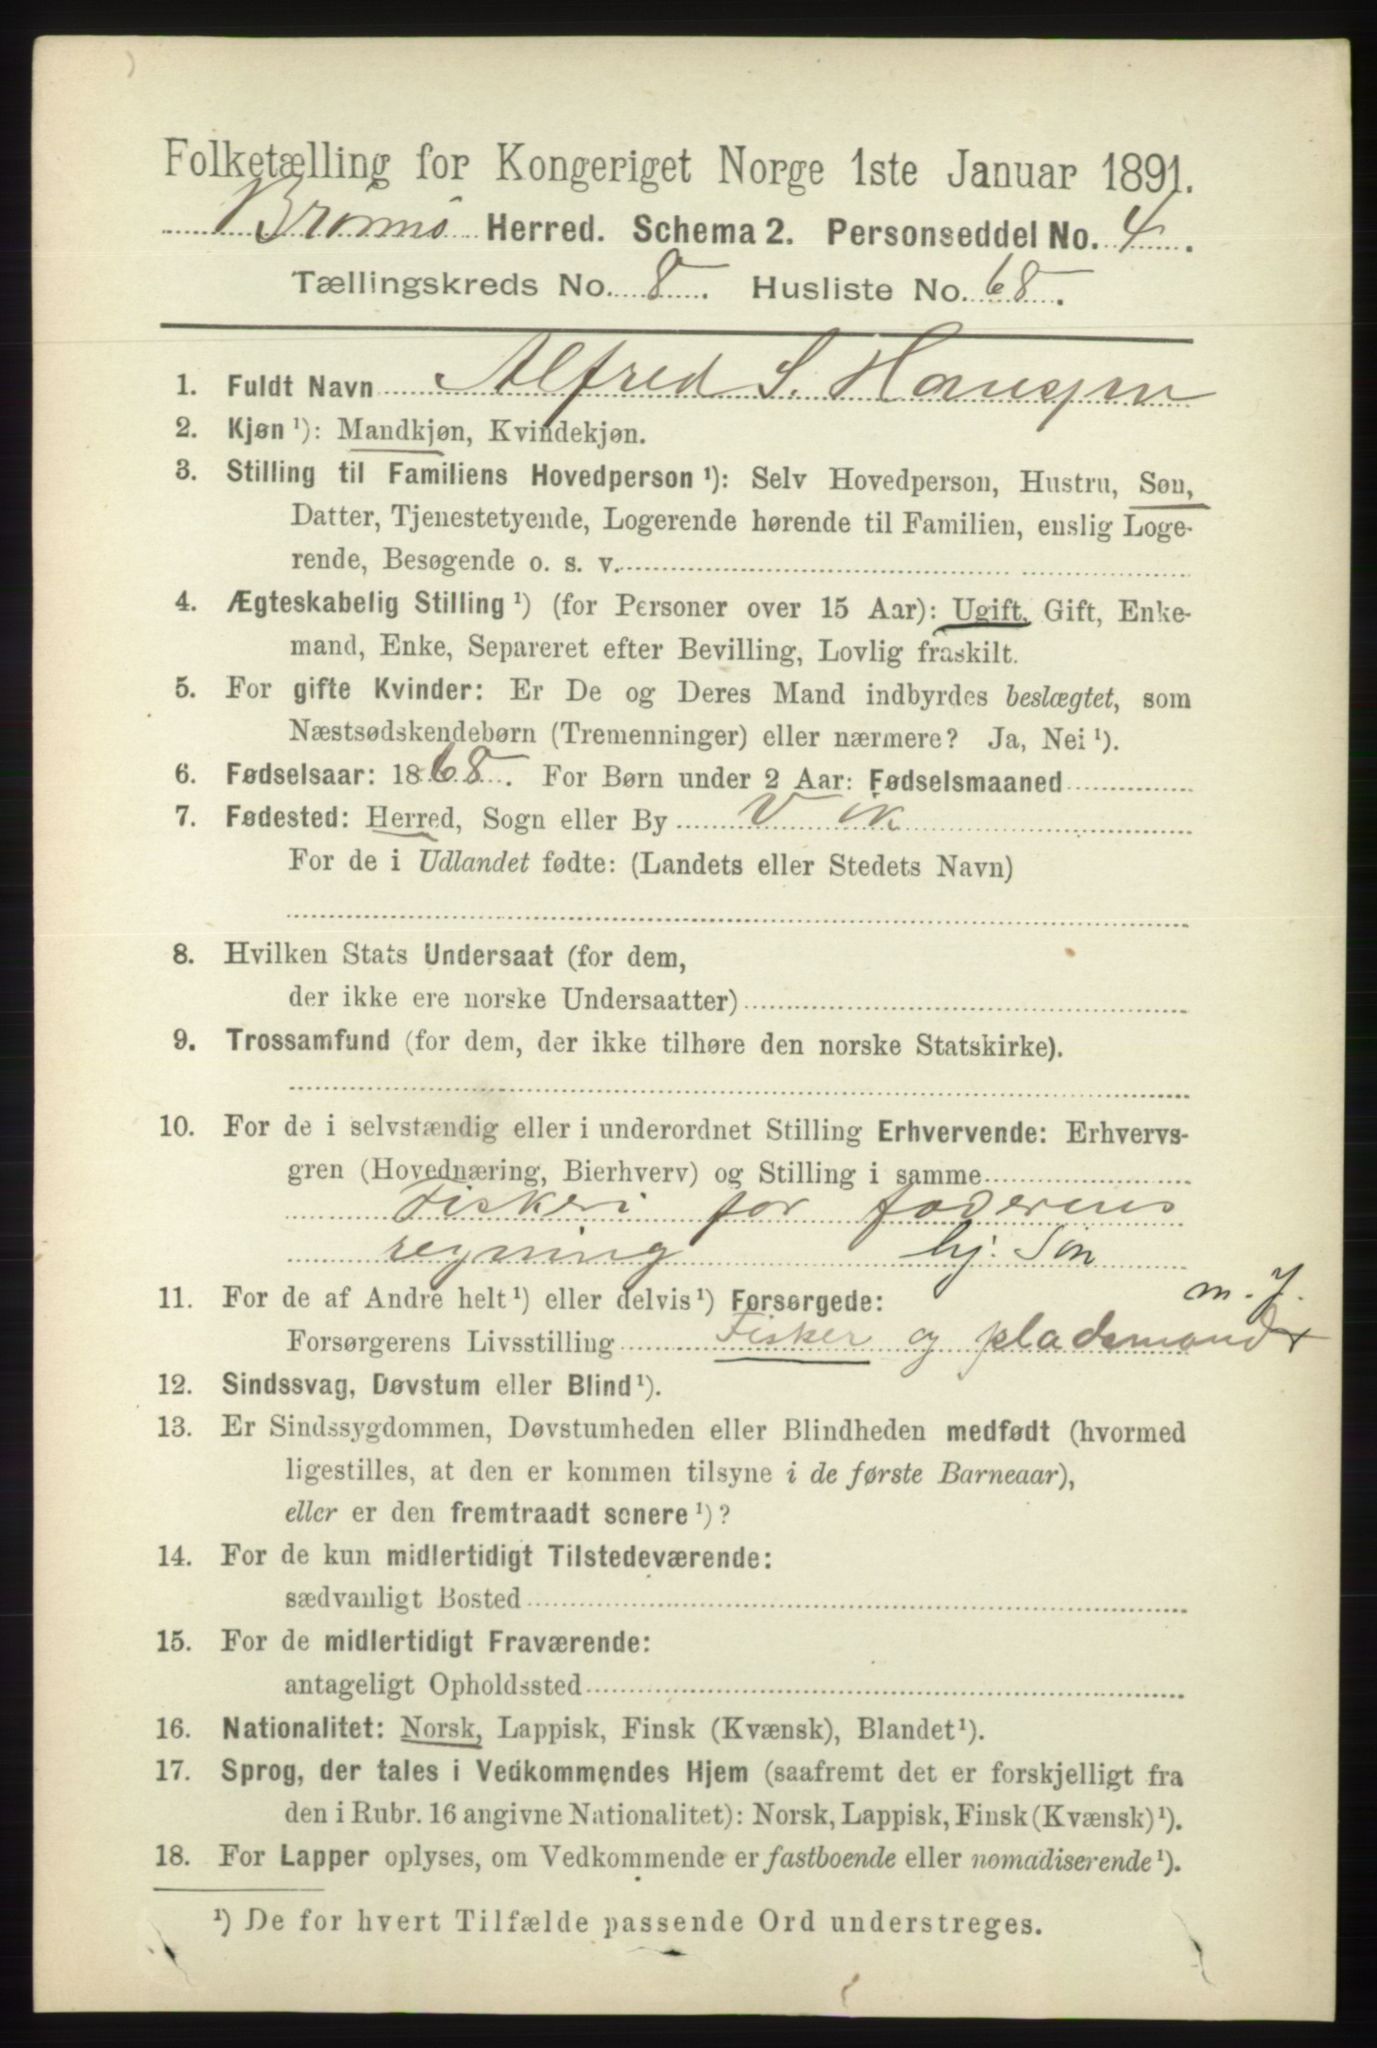 Folketælling for Kongeriget Norge 1ste Januar 1891.
Brønnø Herred. Schema 2. Personseddel No. 4.
Tællingskreds No. 8. Husliste No. 68.
1. Fuldt Navn Alfred S. Hansen
2. Kjøn ¹): Mandkjøn, Kvindekjøn.
3. Stilling til Familiens Hovedperson ¹): Selv Hovedperson, Hustru, Søn,
Datter, Tjenestetyende, Logerende hørende til Familien, enslig Loge-
rende, Besøgende o. s. v.
4. Ægteskabelig Stilling ¹) (for Personer over 15 Aar): Ugift, Gift, Enke-
mand, Enke, Separeret efter Bevilling, Lovlig fraskilt.
5. For gifte Kvinder: Er De og Deres Mand indbyrdes beslægtet, som
Næstsødskendebørn (Tremenninger) eller nærmere? Ja, Nei ¹).
6. Fødselsaar: 1868. For Børn under 2 Aar: Fødselsmaaned
7. Fødested: Herred, Sogn eller By Vik
For de i Udlandet fødte: (Landets eller Stedets Navn)
8. Hvilken Stats Undersaat (for dem,
der ikke ere norske Undersaatter)
9. Trossamfund (for dem, der ikke tilhøre den norske Statskirke).
10. For de i selvstændig eller i underordnet Stilling Erhvervende: Erhvervs-
gren (Hovednæring, Bierhverv) og Stilling i samme
Fiskeri for faderens
regning hj. Søn
11. For de af Andre helt ¹) eller delvis ¹) Forsørgede: m. J.
Forsørgerens Livsstilling Fisker og pladsmand x
12. Sindssvag, Døvstum eller Blind ¹).
13. Er Sindssygdommen, Døvstumheden eller Blindheden medfødt (hvormed
ligestilles, at den er kommen tilsyne i de første Barneaar),
eller er den fremtraadt senere ¹)?
14. For de kun midlertidigt Tilstedeværende:
sædvanligt Bosted
15. For de midlertidigt Fraværende:
antageligt Opholdssted
16. Nationalitet: Norsk, Lappisk, Finsk (Kvænsk), Blandet ¹).
17. Sprog, der tales i Vedkommendes Hjem (saafremt det er forskjelligt fra
den i Rubr. 16 angivne Nationalitet): Norsk, Lappisk, Finsk (Kvænsk) ¹).
18. For Lapper oplyses, om Vedkommende er fastboende eller nomadiserende ¹).
¹) De for hvert Tilfælde passende Ord understreges.